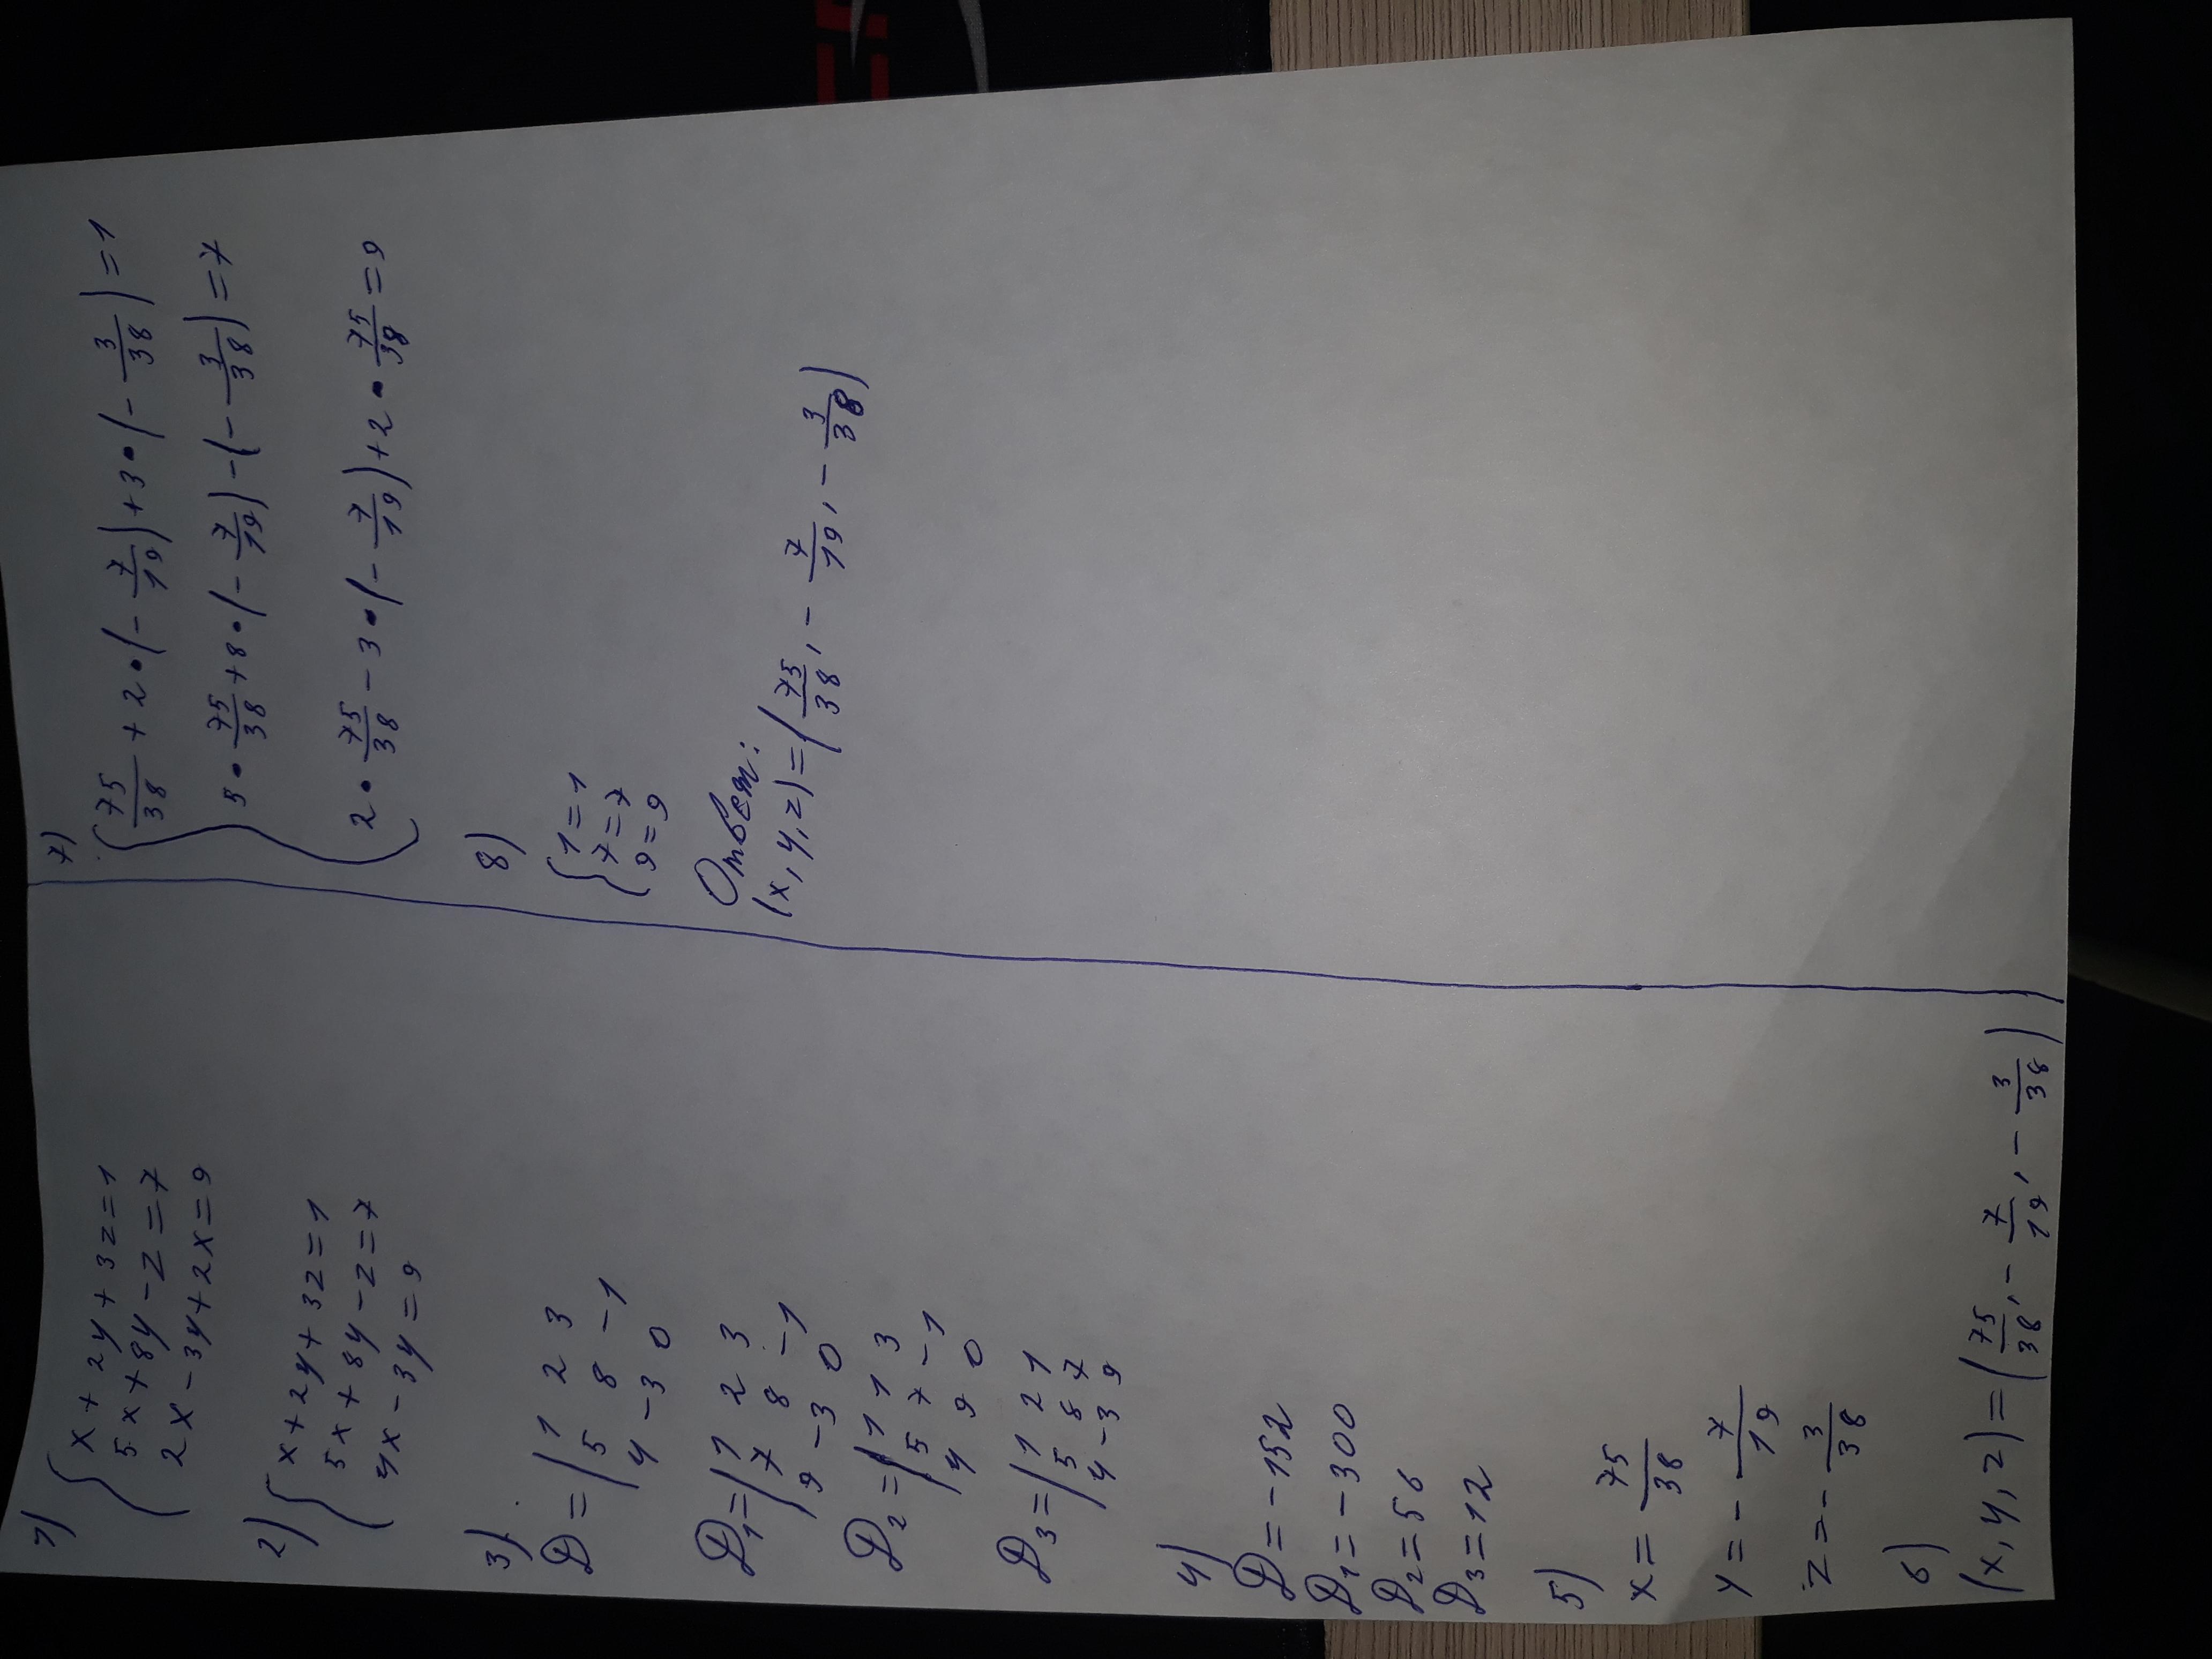 1)
x + 2y + 3z = 1
5x + 8y - z = 7
2x - 3y + 2x = 9
2)
x + 2y + 3z = 1
5x + 8y - z = 7
4x - 3y = 9
3)
D = | 1 2 3
5 8 -1
4 -3 0
D₁ = | 1 2 3
7 8 -1
9 -3 0
D₂ = | 1 1 3
5 7 -1
4 9 0
D₃ = | 1 2 1
5 8 7
4 -3 9
4)
D = -152
D₁ = -300
D₂ = 56
D₃ = 12
5)
x = 75/38
y = - 7/19
z = - 3/38
6)
(x, y, z) = (75/38, - 7/19, - 3/38)
7)
75/38 + 2 • (- 7/19) + 3 • (- 3/38) = 1
5 • 75/38 + 8 • (- 7/19) - (- 3/38) = 7
2 • 75/38 - 3 • (- 7/19) + 2 • 75/38 = 9
8)
1 = 1
7 = 7
9 = 9
Ответ:
(x, y, z) = (75/38, - 7/19, - 3/38)